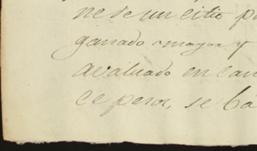 ne de un citio p
ganado mayor y
avaluado en can
ce pesos, se ba